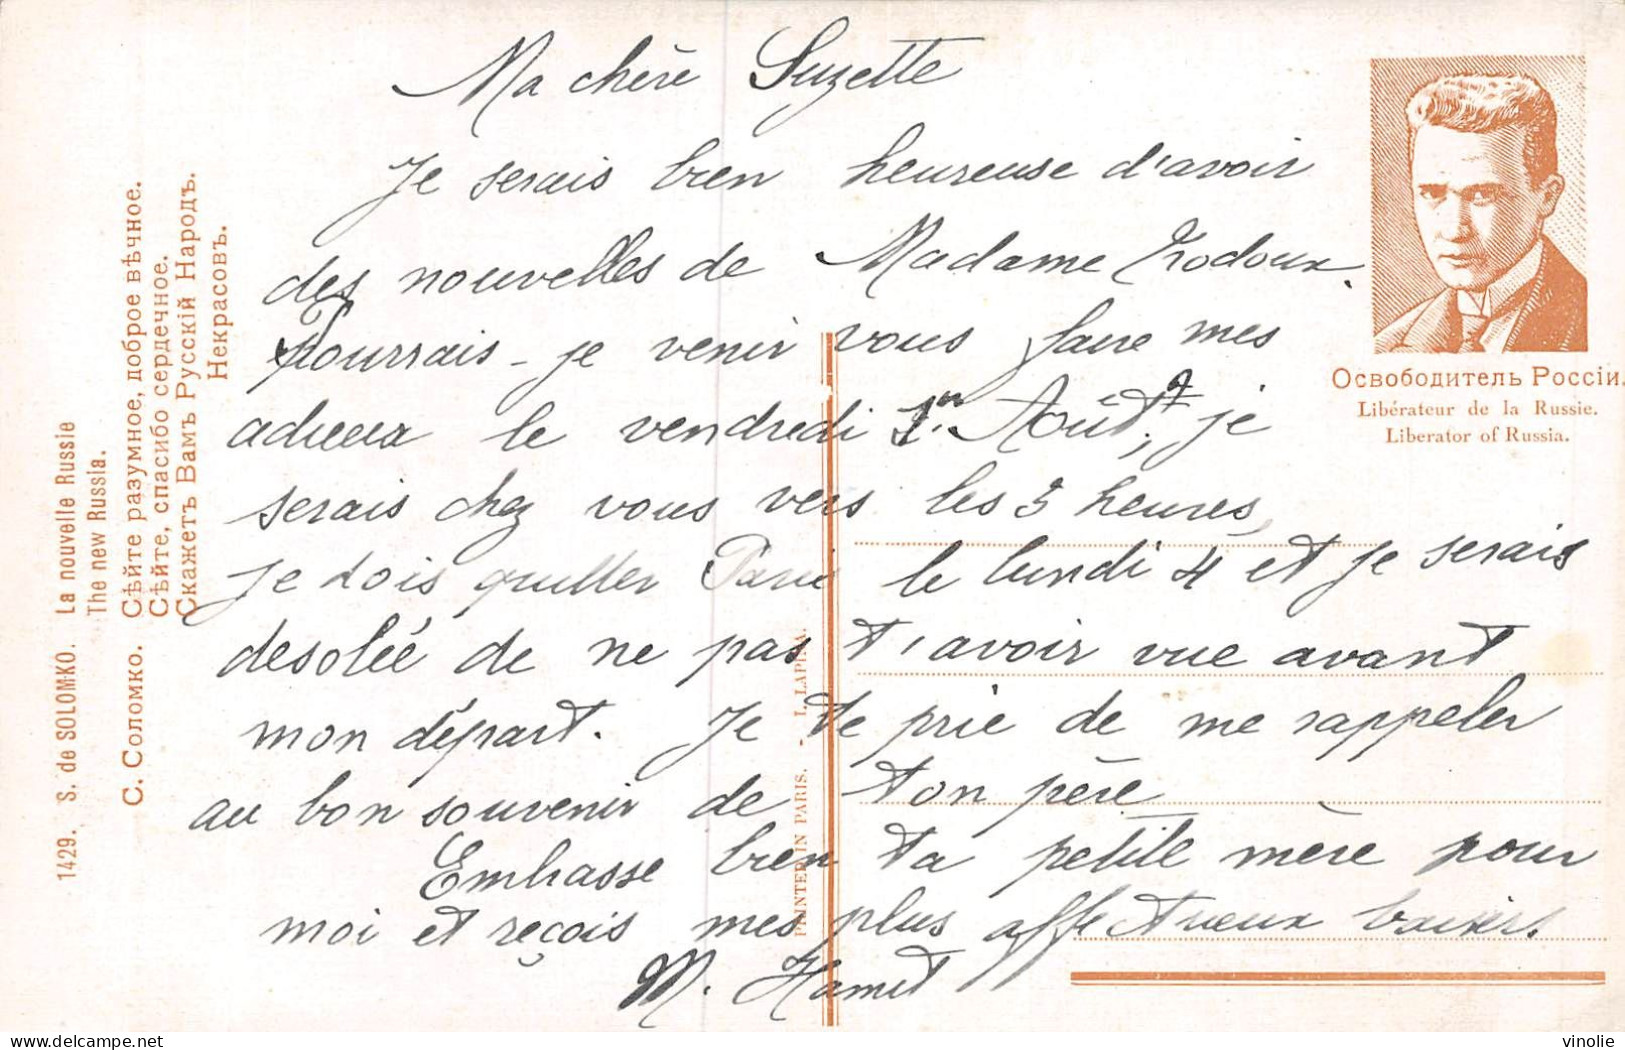 Ma chère Suzette
Je serais bien heureuse d'avoir
des nouvelles de Madame
Pourrais-je venir vous faire mes
adieux le vendredi 1er Août, je
serais chez vous vers les 3 heures,
je dois quitter Paris le lundi 4 et je serais
desolée de ne pas t'avoir vue avant
mon départ. Je te prie de me rappeler
au bon souvenir de ton père
Embrasse bien ta petite mère pour
moi et reçois mes plus affectueux baisers
M. Hamet
Освободитель Россіи.
Libérateur de la Russie.
Liberator of Russia.
1429. S. de SOLOMKO. La nouvelle Russie
The new Russia.
С. Соломко. Сѣйте разумное, доброе вѣчное.
Сѣйте, спасибо сердечное.
Скажетъ Вамъ Русскій Народъ.
Некрасовъ.
PRINTED IN PARIS. - I. LAPINA.
delcampe.net
vinolie